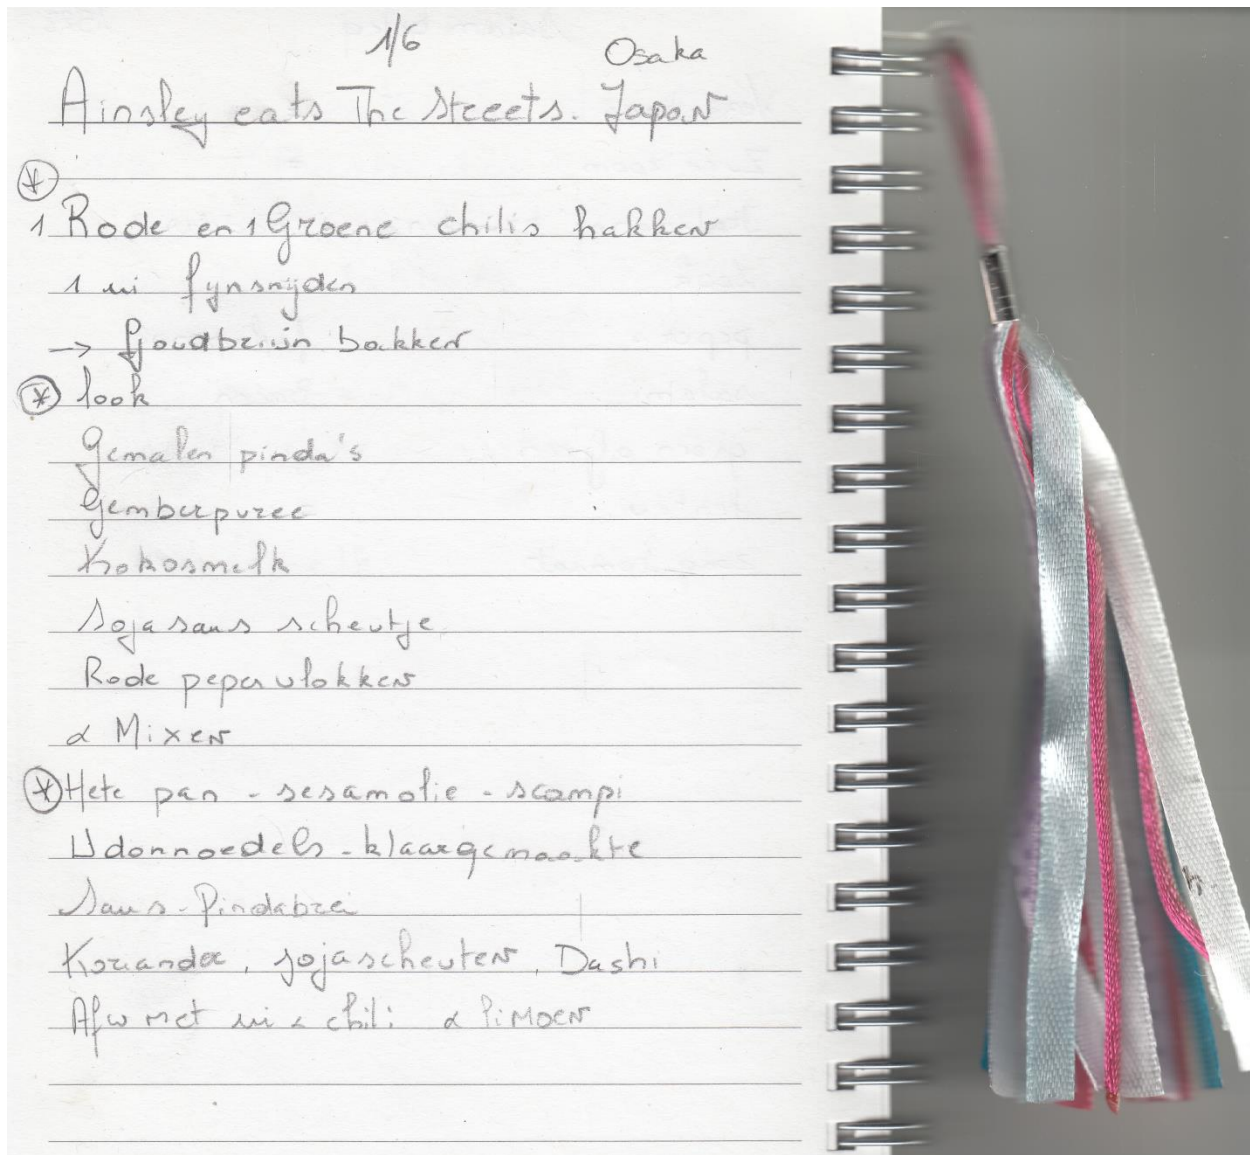 1/6
Osaka
Ainsley eats The Streets. Japan
1 Rode en 1 Groene chilis hakken
1 ui fynsnijden
→ Goudbruin bakken
look
Gemalen pinda's
Gemberpuree
Kokosmelk
Sojasaus scheutje
Rode pepervlokken
& Mixen
Hete pan - sesamolie - scampi
Udonnoedels - klaargemaakte
Saus - Pindabrei
Koriander, sojascheuten, Dashi
Afw met ui & chili & limoen